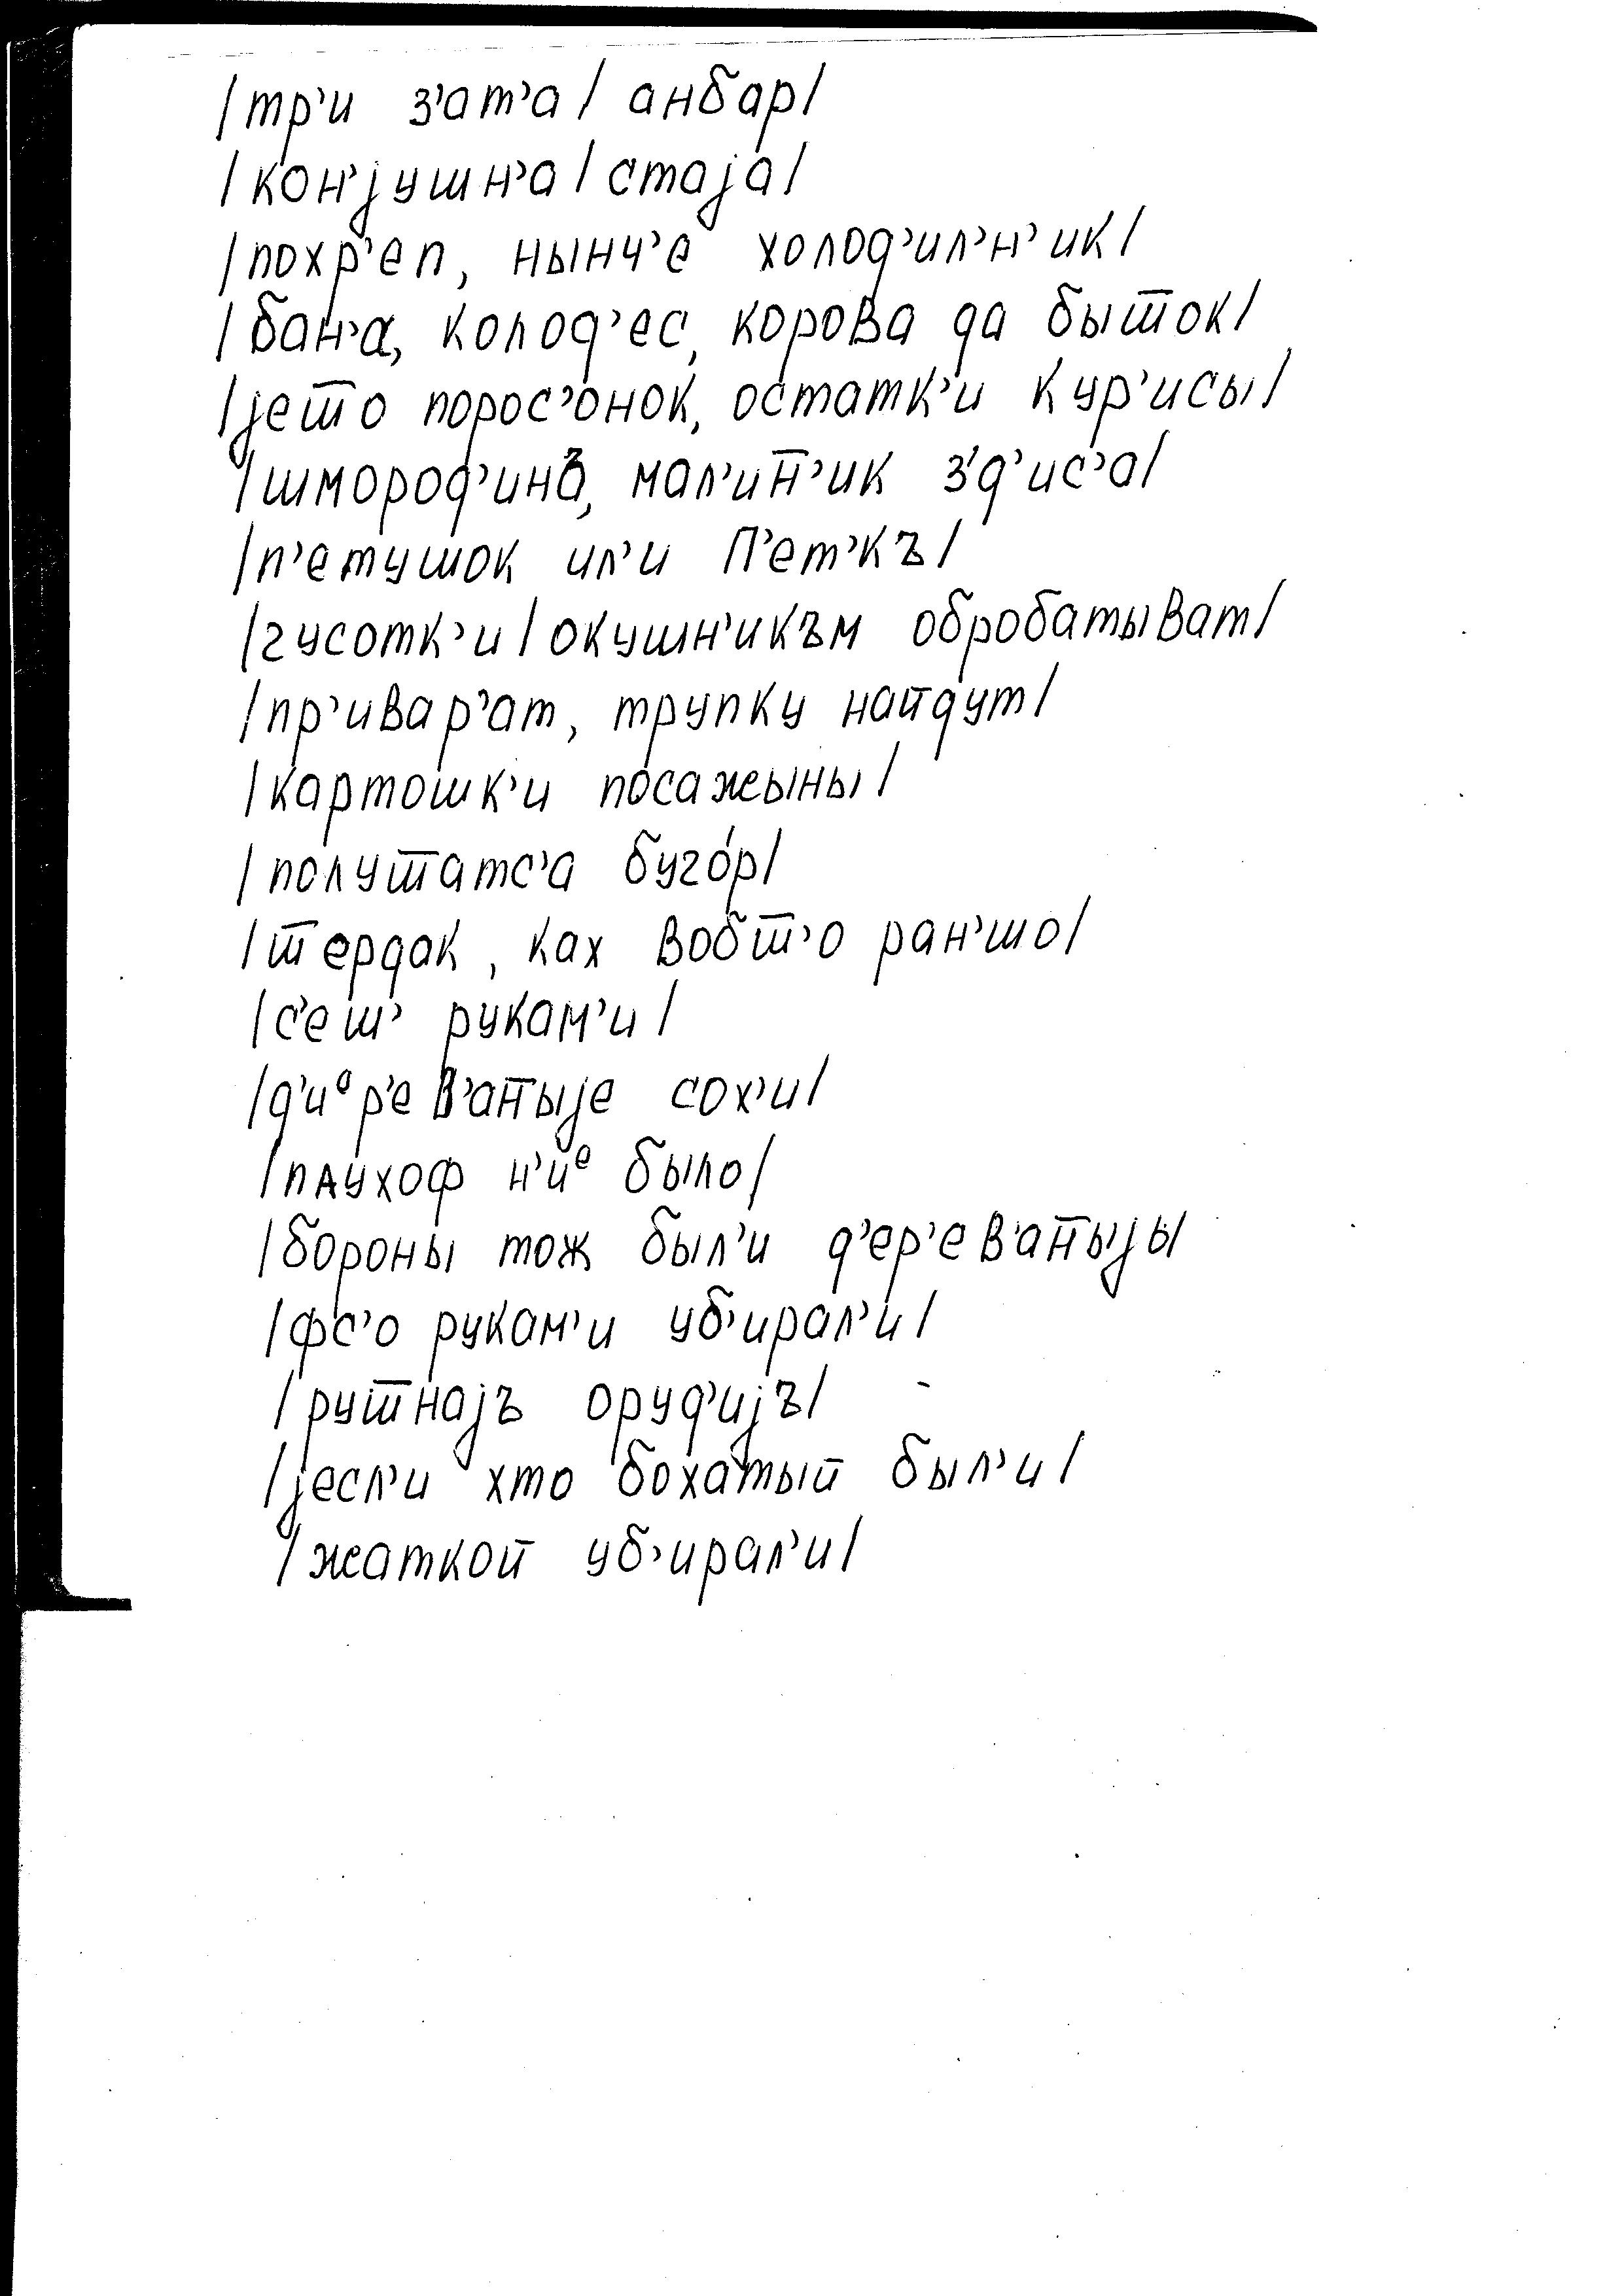 /тр’и з’ат’а/ анбар/
/кон’jушн’а/ стаjа/
/похр’еп, нынч’е холод’ил’н’ик/
/бан’а, колод’ес, корова да быт̅ок/
/jет̅о порос’онок, остатк’и кур’исы/
/шмород’инъ, мал’ин̅’ик з’д’ис’а/
/п’етушок ил’и П’ет’къ/
/гусотк’и/ окушн’икъм обробатыват/
/пр’ивар’ат, трупку найдут/
/картошк’и посажыны/
/полут̅атс’а буго́р/
/т̅ердак, ках вобт̅’о ран’шо/
/с’еш’ рукам’и/
/д’иᵉр’ев’ан̅ыjе сох’и/
/плухоф н’иᵉ было/
/бороны тож был’и д’ер’ев’ан̅ыjы/
/фс’о рукам’и уб’ирал’и/
/рут̅наjъ оруд’иjъ/
/jесл’и хто бохатый был’и/
/жаткой уб’ирал’и/